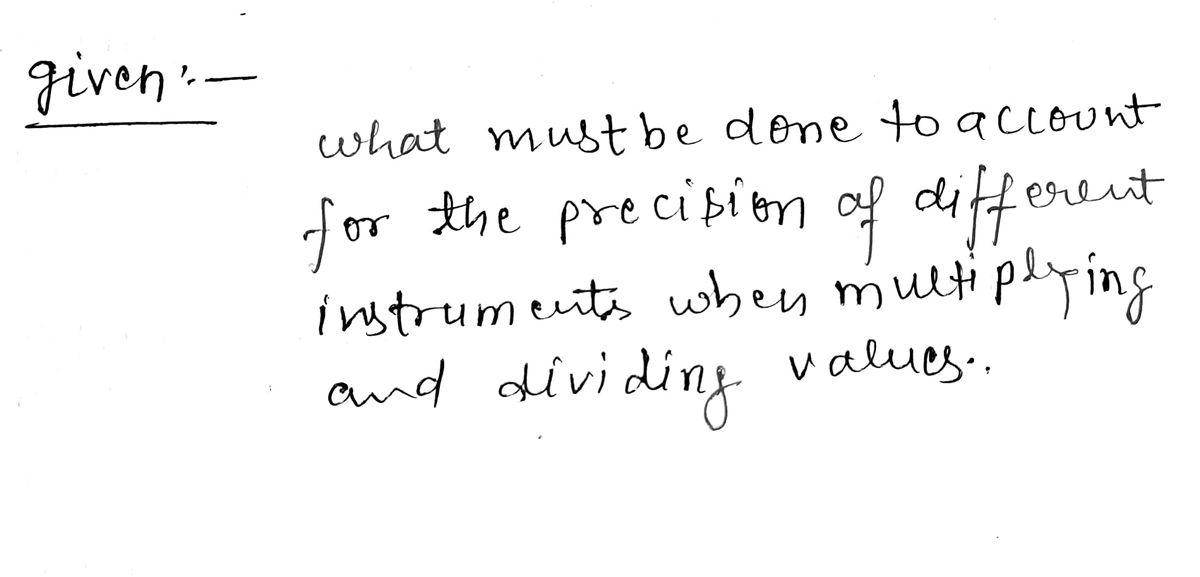 given:-
what must be done to account
for the precision of different
instruments when multiplying
and dividing values..